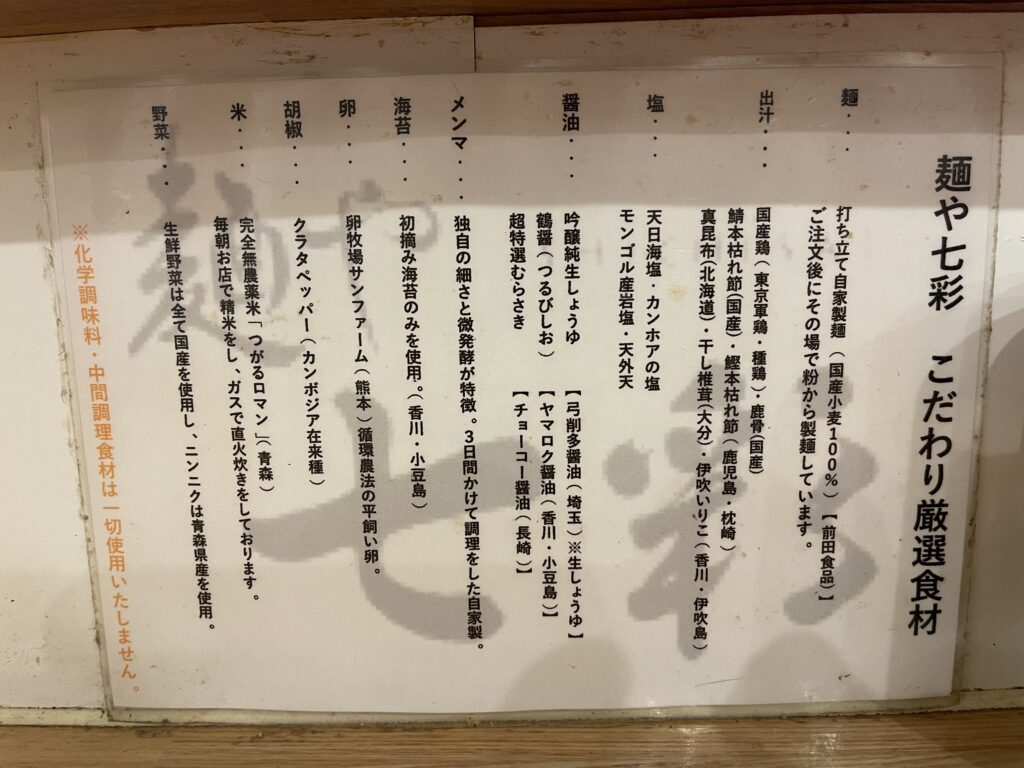 麺や七彩 こだわり厳選食材
麺・・・ 打ち立て自家製麺（国産小麦100%）【前田食品】
ご注文後にその場で粉から製麺しています。
出汁・・・ 国産鶏（東京軍鶏・種鶏）・鹿骨(国産)
鯖本枯れ節(国産)・鰹本枯れ節（鹿児島・枕崎）
真昆布(北海道)・干し椎茸(大分)・伊吹いりこ（香川・伊吹島）
塩・・・ 天日海塩・カンホアの塩
モンゴル産岩塩・天外天
醤油・・・ 吟醸純生しょうゆ 【弓削多醤油（埼玉）※生しょうゆ】
鶴醤（つるびしお） 【ヤマロク醤油（香川・小豆島）】
超特選むらさき 【チョーコー醤油（長崎）】
メンマ・・・ 独自の細さと微発酵が特徴。3日間かけて調理をした自家製。
海苔・・・ 初摘み海苔のみを使用。（香川・小豆島）
卵・・・ 卵牧場サンファーム（熊本）循環農法の平飼い卵。
胡椒・・・ クラタペッパー（カンボジア在来種）
米・・・ 完全無農薬米「つがるロマン」（青森）
毎朝お店で精米をし、ガスで直火炊きをしております。
野菜・・・ 生鮮野菜は全て国産を使用し、ニンニクは青森県産を使用。
※化学調味料・中間調理食材は一切使用いたしません。
麺や
七彩